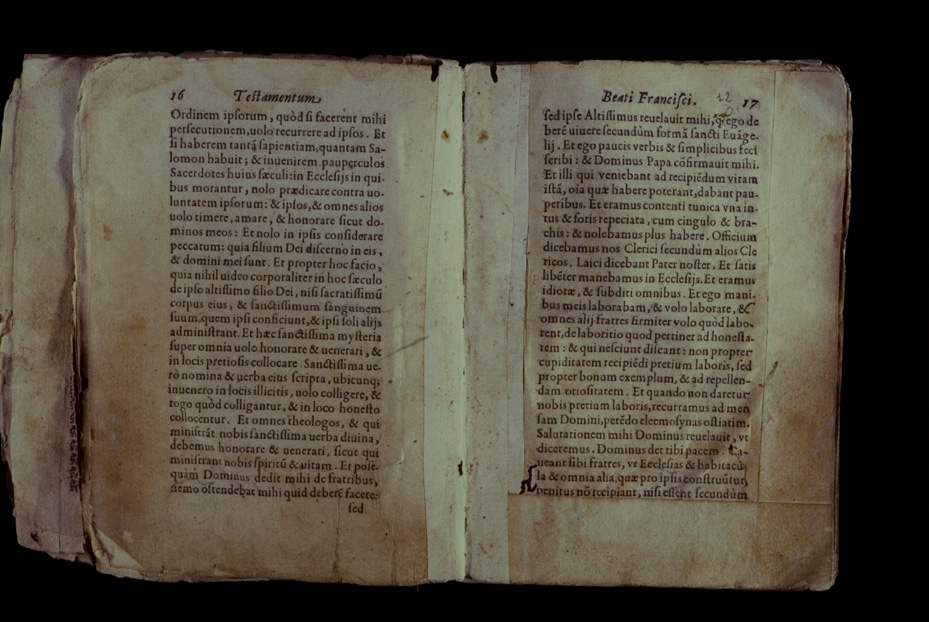 16 Testamentum
Ordinem ipsorum, quòd si facerent mihi
persecutionem, uolo recurrere ad ipsos. Et
si haberem tantā sapientiam, quantam Sa-
lomon habuit; & inuenirem pauperculos
Sacerdotes huius sæculi: in Ecclesijs in qui-
bus morantur, nolo prædicare contra uo-
luntatem ipsorum: & ipsos, & omnes alios
uolo timere, amare, & honorare sicut do-
minos meos: Et nolo in ipsis considerare
peccatum: quia filium Dei discerno in eis,
& domini mei sunt. Et propter hoc facio,
quia nihil uideo corporaliter in hoc sæculo
de ipso altissimo filio Dei, nisi sacratissimū
corpus eius, & sanctissimum sanguinem
suum, quem ipsi conficiunt, & ipsi soli alijs
administrant. Et hæc sanctissima mysteria
super omnia uolo honorare & uenerari, &
in locis pretiosis collocare. Sanctissima ue-
rò nomina & uerba eius scripta, ubicunq;
inuenero in locis illicitis, uolo colligere, &
rogo quòd colligantur, & in loco honesto
collocentur. Et omnes theologos, & qui
ministrāt nobis sanctissima uerba diuina,
debemus honorare & uenerari, sicut qui
ministrant nobis spiritū & uitam. Et post-
quàm Dominus dedit mihi de fratribus,
nemo ostendebat mihi quid deberē facere:
sed
Beati Francisci. 12 17
sed ipse Altissimus reuelauit mihi, q, ego de
berē uiuere secundùm formā sancti Euāge-
lij. Et ego paucis verbis & simplicibus feci
scribi: & Dominus Papa cōfirmauit mihi.
Et illi qui veniebant ad recipiēdum vitam
istā, oīa quæ habere poterant, dabant pau-
peribus. Et eramus contenti tunica vna in-
tus & foris repeciata, cum cingulo & bra-
chis: & nolebamus plus habere. Officium
dicebamus nos Clerici secundùm alios Cle
ricos. Laici dicebant Pater noster. Et satis
libēter manebamus in Ecclesijs. Et eramus
idiotæ, & subditi omnibus. Et ego mani-
bus meis laborabam, & volo laborare, &
omnes alij fratres firmiter volo quòd labo-
rent, de laboritio quod pertinet ad honesta-
tem: & qui nesciunt discant: non propter
cupiditatem recipiēdi pretium laboris, sed
propter bonum exemplum, & ad repellen-
dam otiositatem. Et quando non daretur
nobis pretium laboris, recurramus ad men
sam Domini, petēdo eleemosynas ostiatim.
Salutationem mihi Dominus reuelauit, vt
diceremus. Dominus det tibi pacem. Ca-
ueant sibi fratres, vt Ecclesias & habitacu
la & omnia alia, quæ pro ipsis construūtur,
penitus nō recipiant, nisi essent secundùm